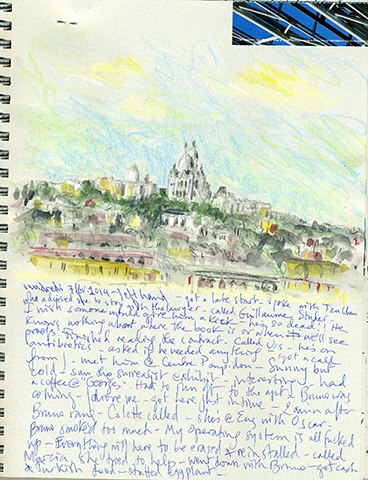 vendredi 7 fév 2014 - got a late start - spoke with
she advised me to stay the lawyer - called Guillaume
I wish someone would give him a kick - he's so dead!! He
knows nothing about where the book is or when I we'll see
proofs. Finished reading the contract. Called he's on
antibiotics - asked if he needed anything - got a call
from J - met him @ Centre Pompidou - Sunny but
cold - saw the surrealist exhibit - interesting - had
a coffee @ "Georges". Had to run off - to the apt - Bruno was
coming - J drove me - got here just in time - 2 min after
Bruno rang - Colette called - she's @ with Oscar,
Bruno smoked too much - My operating system is all fucked
up - Everything will have to be erased & reinstalled - called
Marcia she tried to help - went down with Bruno - got cash
& Turkish food - stuffed eggplant -